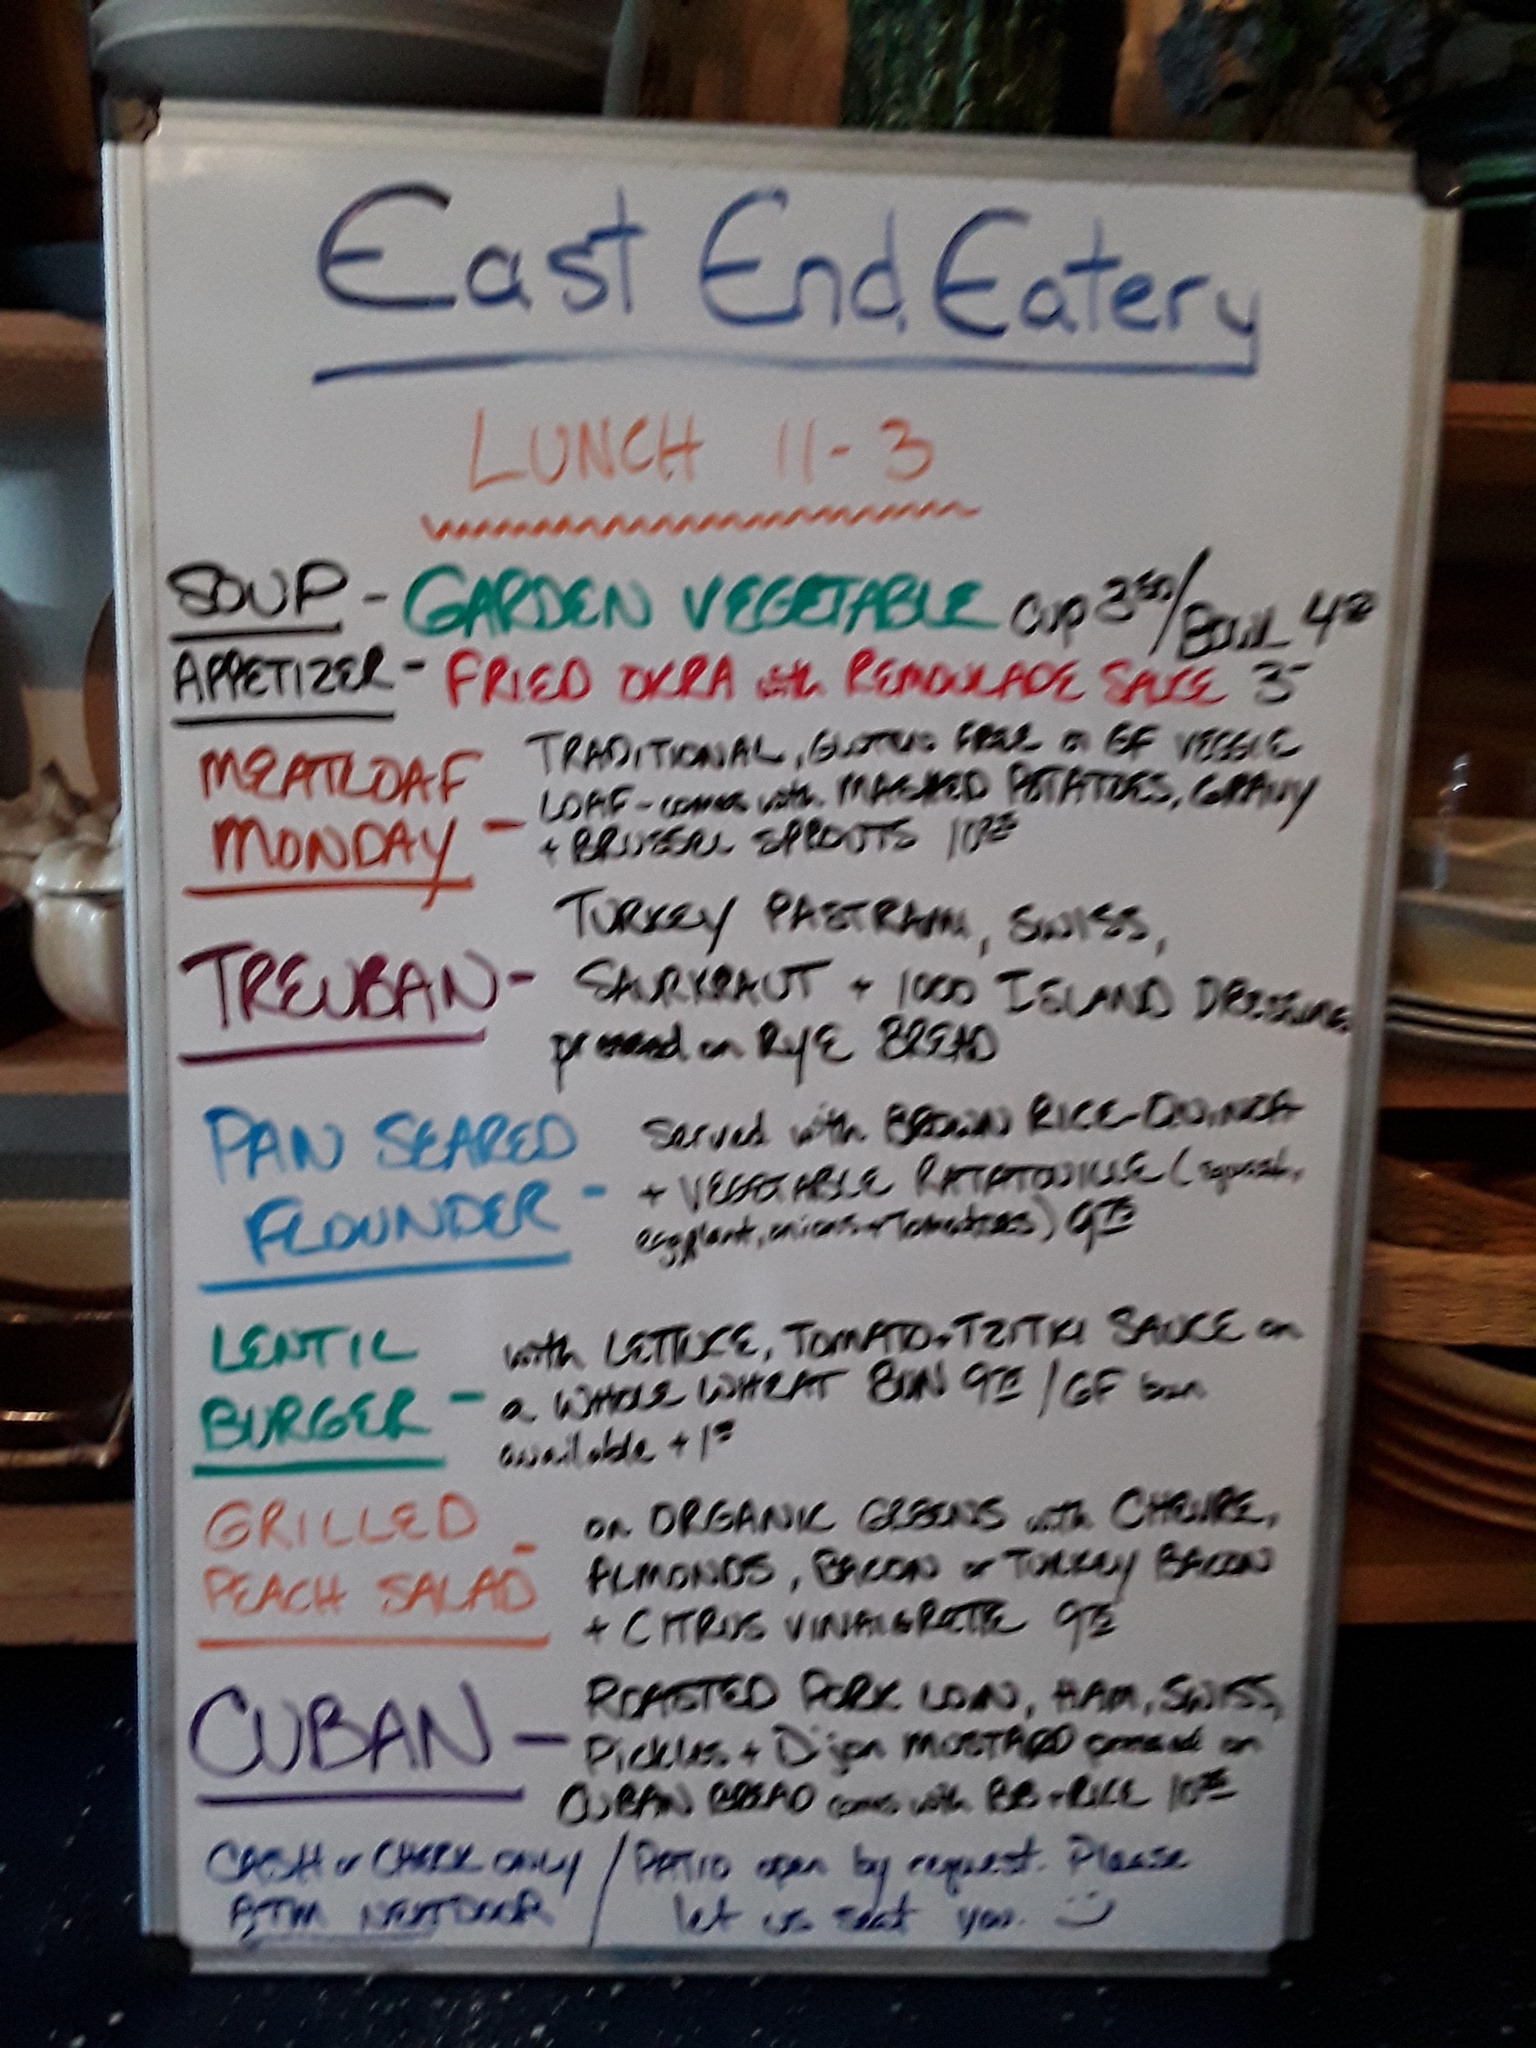 East End Eatery
LUNCH 11-3
SOUP - GARDEN VEGETABLE CUP 3.50/BOWL 4
APPETIZER - FRIED OKRA with REMOULADE SAUCE 3-
MEATLOAF MONDAY - TRADITIONAL, GLUTEN FREE or GF VEGGIE
LOAF - comes with MASHED POTATOES, GRAVY
+ BRUSSEL SPROUTS 10
TREUBAN - TURKEY PASTRAMI, SWISS,
SAURKRAUT + 1000 ISLAND DRESSING
pressed on RYE BREAD
PAN SEARED FLOUNDER - Served with BROWN RICE-QUINOA
+ VEGETABLE RATATOUILLE (squash,
eggplant, onions + Tomatoes) 9
LENTIL BURGER - with LETTUCE, TOMATO + TZITKI SAUCE on
a WHOLE WHEAT BUN 9 / GF bun
available + 1
GRILLED PEACH SALAD - on ORGANIC GREENS with CHEVRE,
ALMONDS, BACON or TURKEY BACON
+ CITRUS VINAIGRETTE 9
CUBAN - ROASTED PORK LOIN, HAM, SWISS,
Pickles + Dijon MUSTARD pressed on
CUBAN BREAD comes with BB + RICE 10
CASH or CHECK ONLY / PATIO open by request. Please
ATM NEXT DOOR / let us seat you.